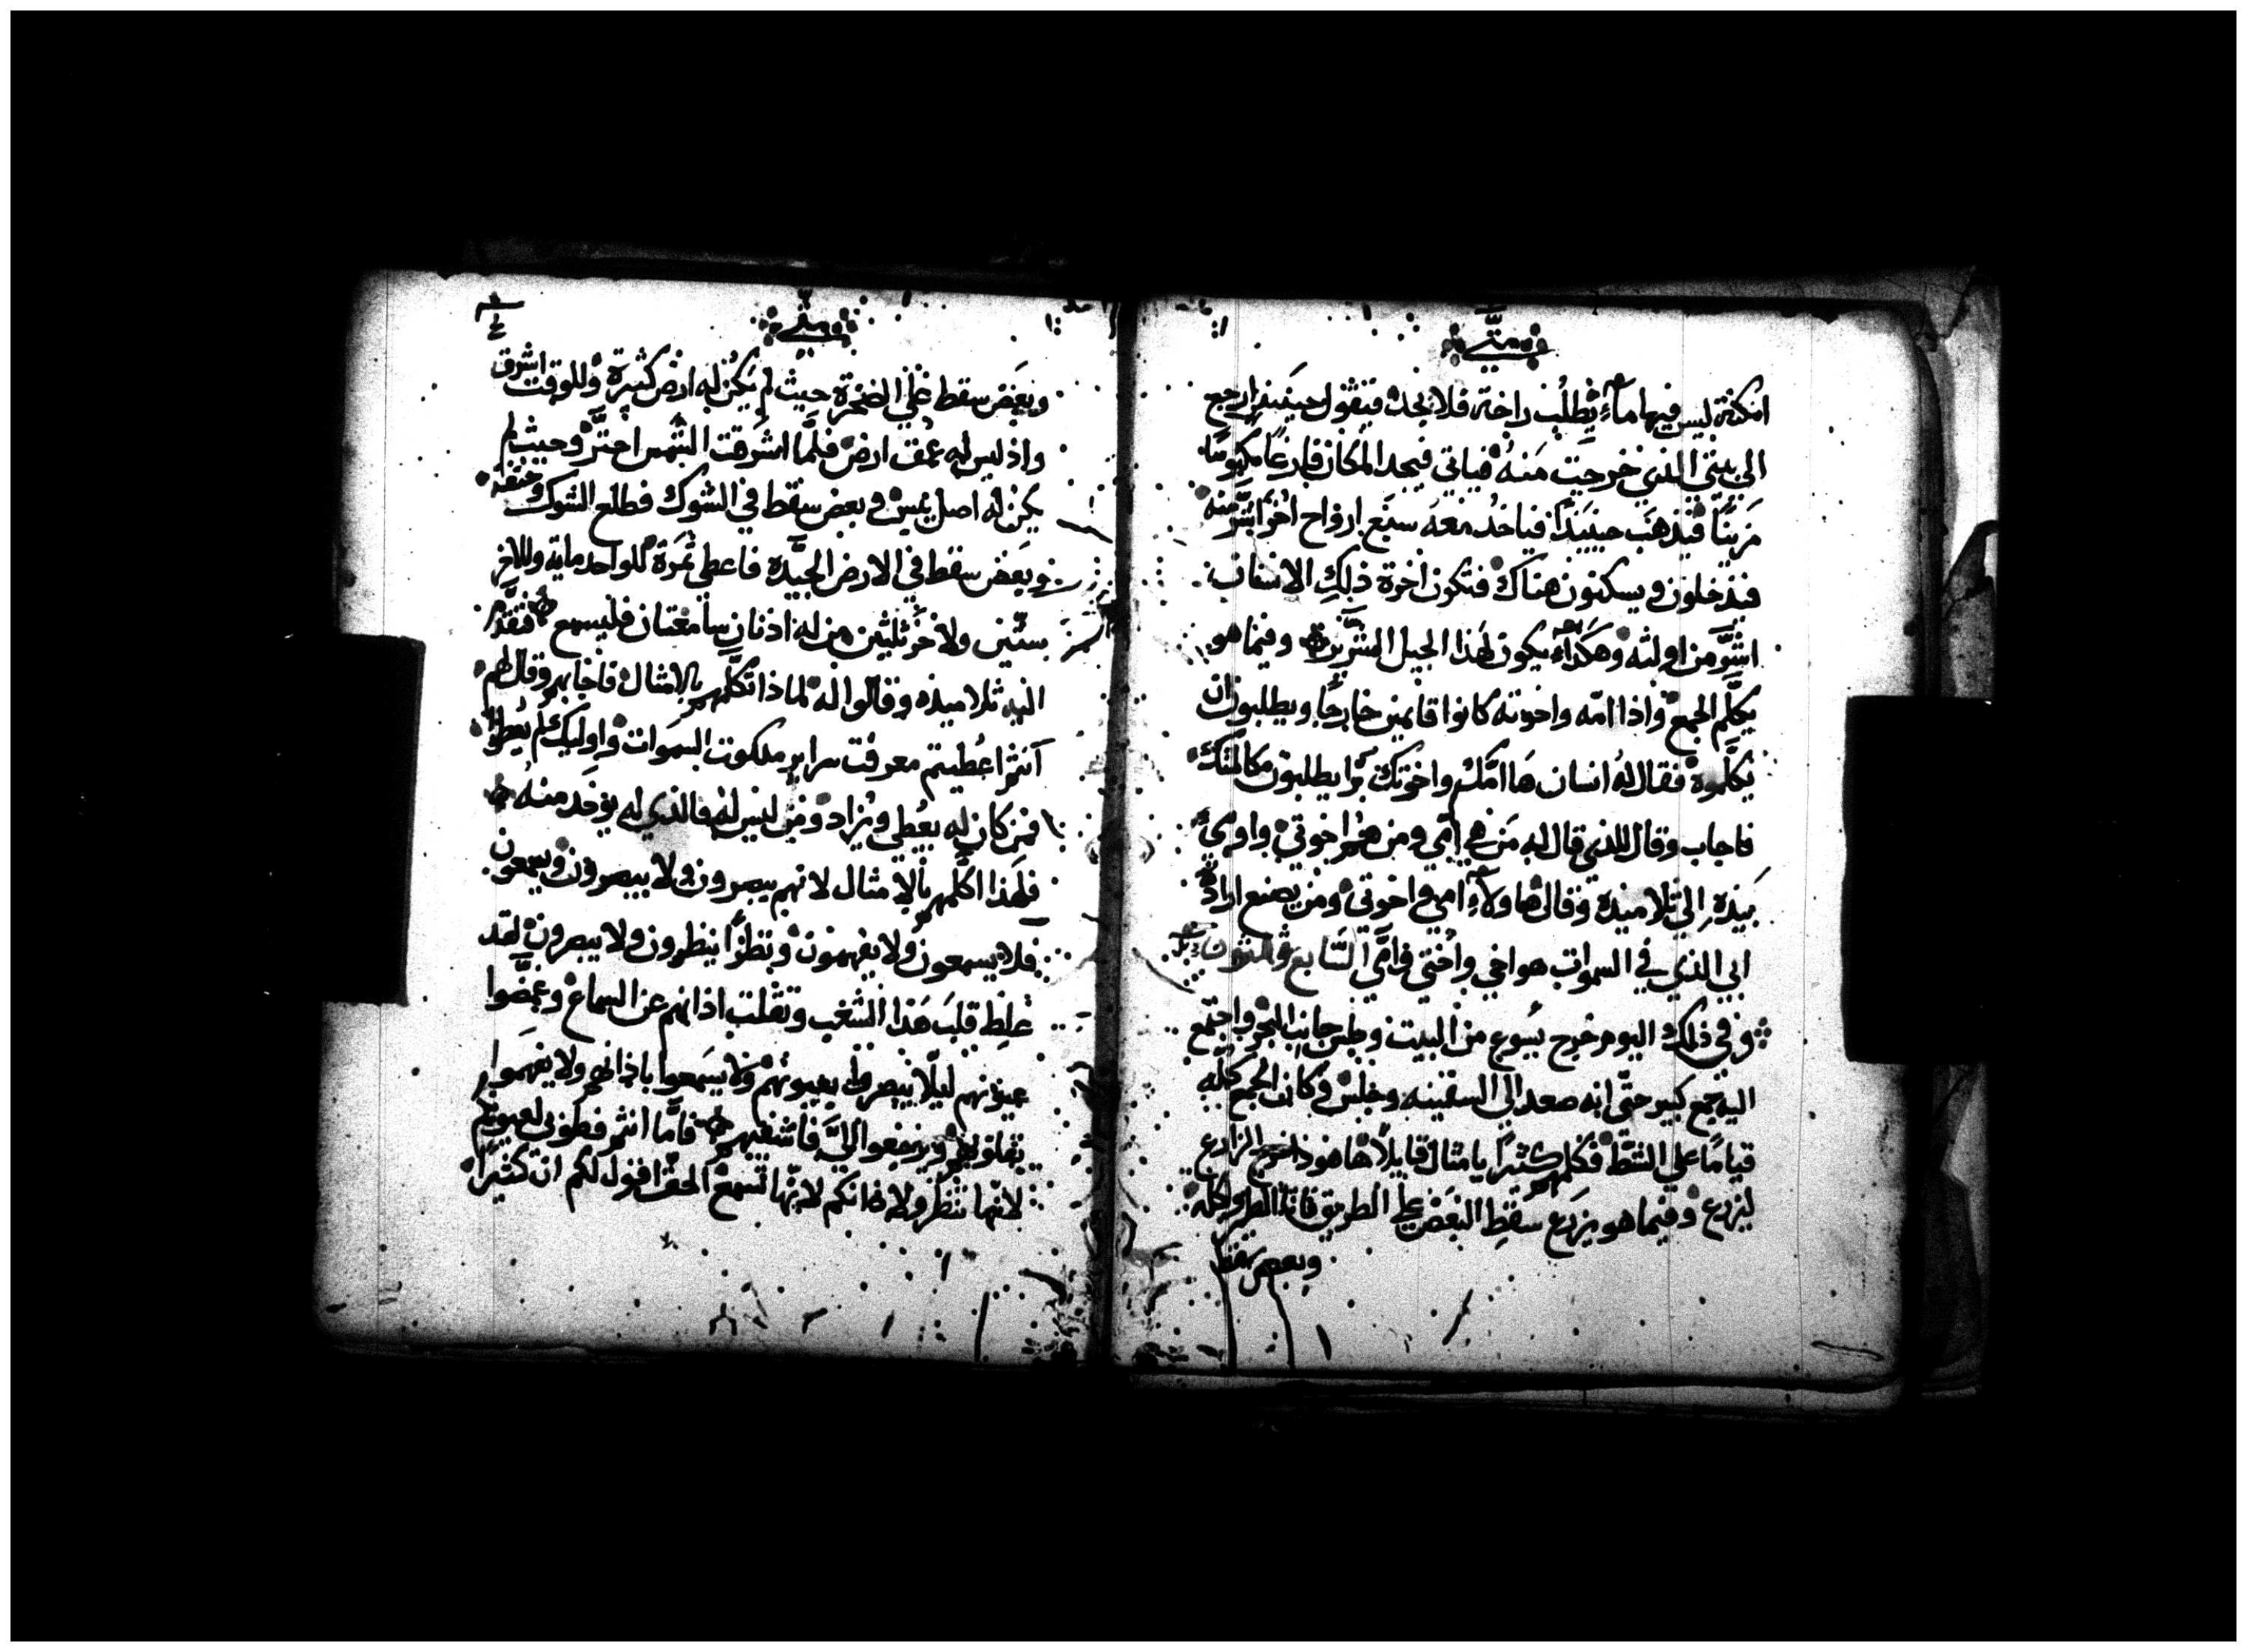 متى
امكنة ليس فيها ماء يطلب راحة فلا يجد فيقول حينيذ ارجع
الى بيتي الذي خرجت منه فياتي فيجد المكان فارغا مكنوسا
مزينا فيذهب حينيذ فياخذ معه سبع ارواح اخر اشر منه
فيدخلون ويسكنون هناك فتكون اخرة ذلك الانسان
اشر من اولته وهكذا يكون لهذا الجيل الشرير وفيما هو
يكلم الجمع واذا امه واخوته كانوا قايمين خارجا ويطلبون ان
يكلموه فقال له انسان ها امك واخوتك برا يطلبون مكالمتك
فاجاب وقال للذي قال له من هي امي ومن هم اخوتي واومى
بيده الى تلاميذه وقال هاولاء امي واخوتي ومن يصنع ارادة
ابي الذي في السموات هو اخي واختي وامي السابع والثلثون
وفي ذلك اليوم خرج يسوع من البيت وجلس جانب البحر واجتمع
اليه جمع كبير حتى انه صعد الى السفينه وجلس وكان الجمع كله
قياما على الشط فكلمهم كثيرا بامثال قايلا هاهوذا خرج الزارع
ليزرع وفيما هو يزرع سقط البعض على الطريق فاتا الطير واكله
وبعض سقط
متى
وبعض سقط على الصخرة حيث لم يكن له ارض كثيرة وللوقت اشرق
واذ ليس له عمق ارض فلما اشرقت الشمس احتر وحيث لم
يكن له اصل يبس وبعض سقط في الشوك فطلع الشوك وخنقه
وبعض سقط في الارض الجيده فاعطى ثمرة للواحد مايه وللاخر
ستين ولاخر ثلثين من له اذنان سامعتان فليسمع فتقدم
اليه تلاميذه وقالوا له لماذا تكلمهم بالامثال فاجابهم وقال لهم
انتم اعطيتم معرفت سراير ملكوت السموات واوليك لم يعطوا
فمن كان له يعطى ويزاد ومن ليس له فالذي له يوخد منه
فلهذا اكلمهم بالامثال لانهم يبصرون ولا يبصرون ويسمعون
فلا يسمعون ولا يفهمون ونظرا ينظرون ولا يبصرون لقد
غلظ قلب هذا الشعب وتقلت اذانهم عن السماع وغمضوا
عيونهم ليلا يبصروا بعيونهم ولا يسمعوا باذانهم ولا يفهموا
بقلوبهم ويرجعوا الي فاشفيهم فاما انتم فطوبى لعيونكم
لانها تنظر ولاذانكم لانها تسمع الحق اقول لكم ان كثيرا